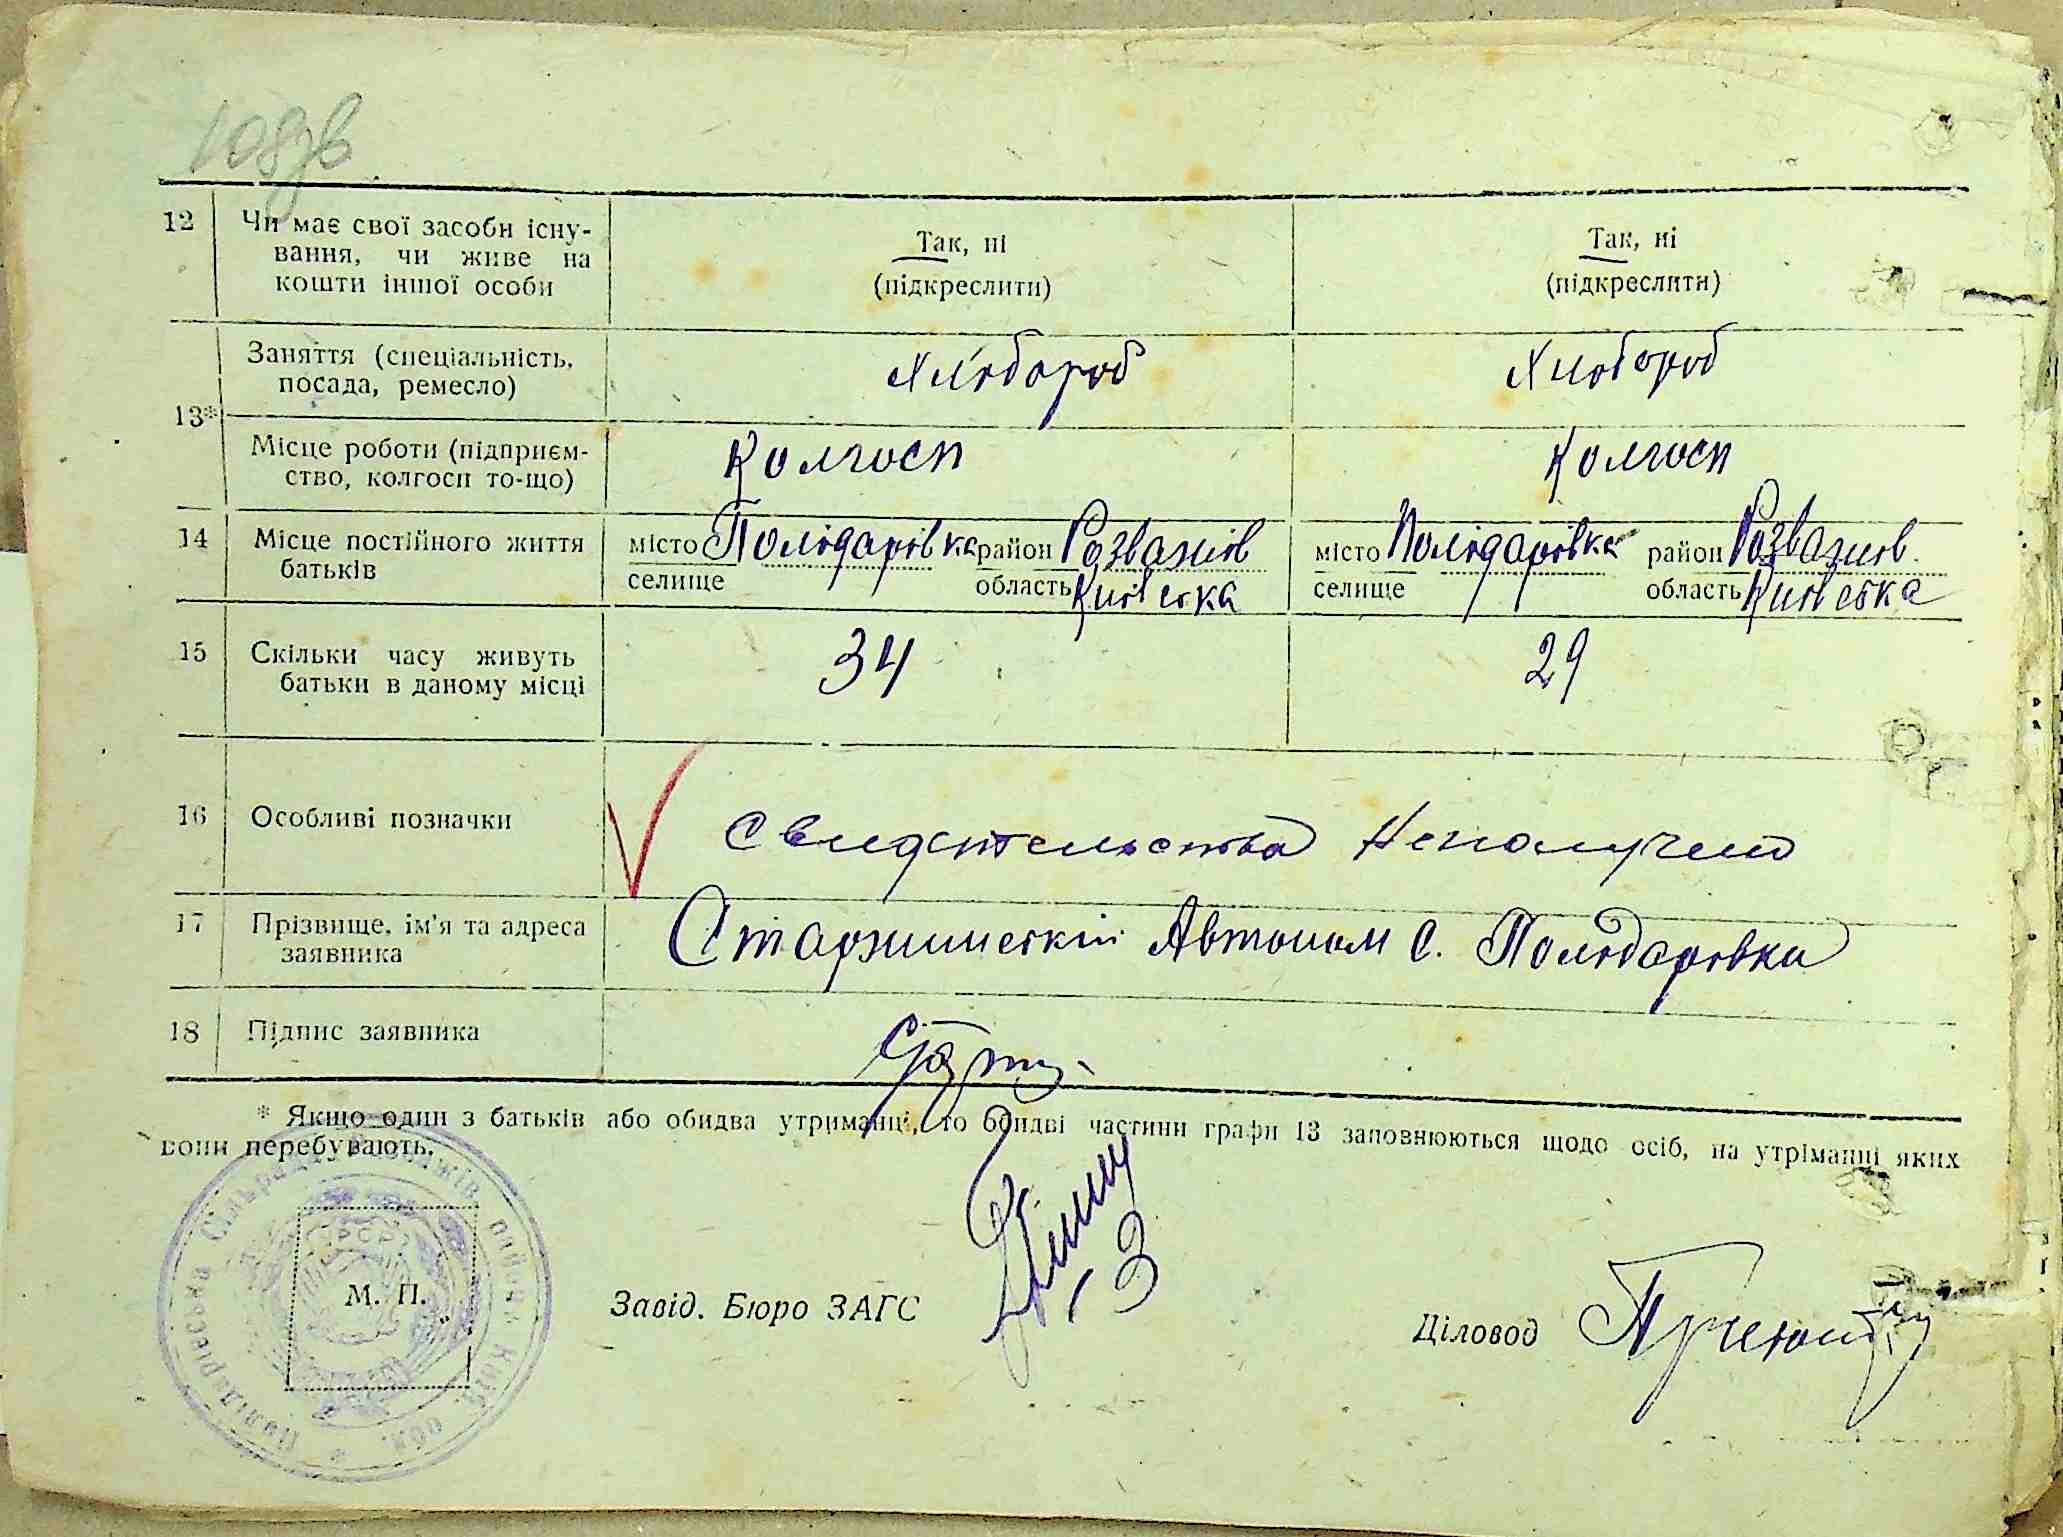 108зв
12 Чи має свої засоби існу-
вання, чи живе на
кошти іншої особи
Так, ні
(підкреслити)
Так, ні
(підкреслити)
13* Заняття (спеціальність,
посада, ремесло)
Хлібороб
Хлібороб
Місце роботи (підприєм-
ство, колгосп то-що)
Колгосп
Колгосп
14 Місце постійного життя
батьків
місто Полідаровка район Розважів
селище область Київська
місто Полідаровка район Розважів.
селище область Київська
15 Скільки часу живуть
батьки в даному місці
34
29
16 Особливі позначки
Свидетельства неполучено
17 Прізвище, ім'я та адреса
заявника
Автоном с. Полідаровка
18 Підпис заявника
* Якщо один з батьків або обидва утриманці, то обидві частини графи 13 заповнюються щодо осіб, на утріманні яких
вони перебувають.
М. П.
Завід. Бюро ЗАГС
Діловод